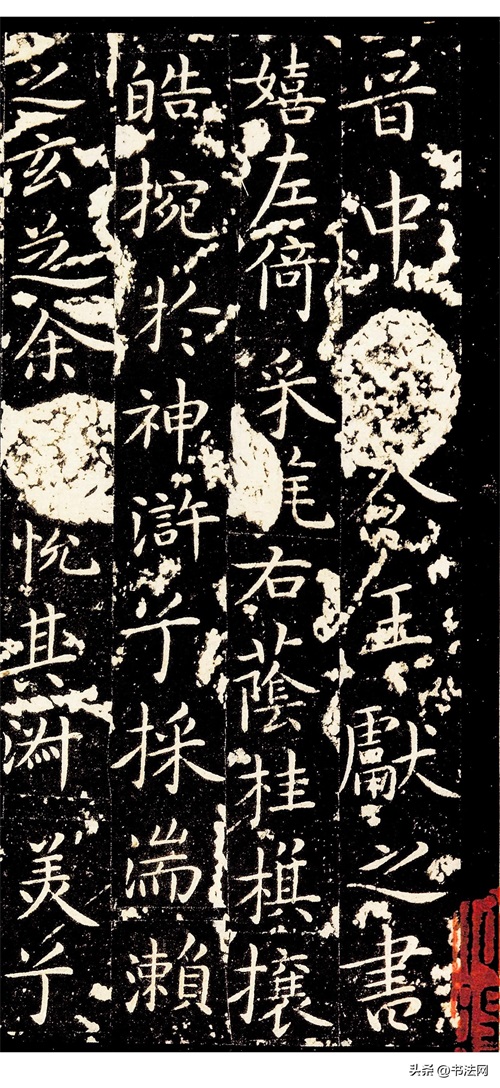 晉中令王獻之書
嬉左倚采旄右蔭桂棋攘
皓捥於神滸兮採湍瀨
之玄芝余悅其淑美兮
头条 @书法网